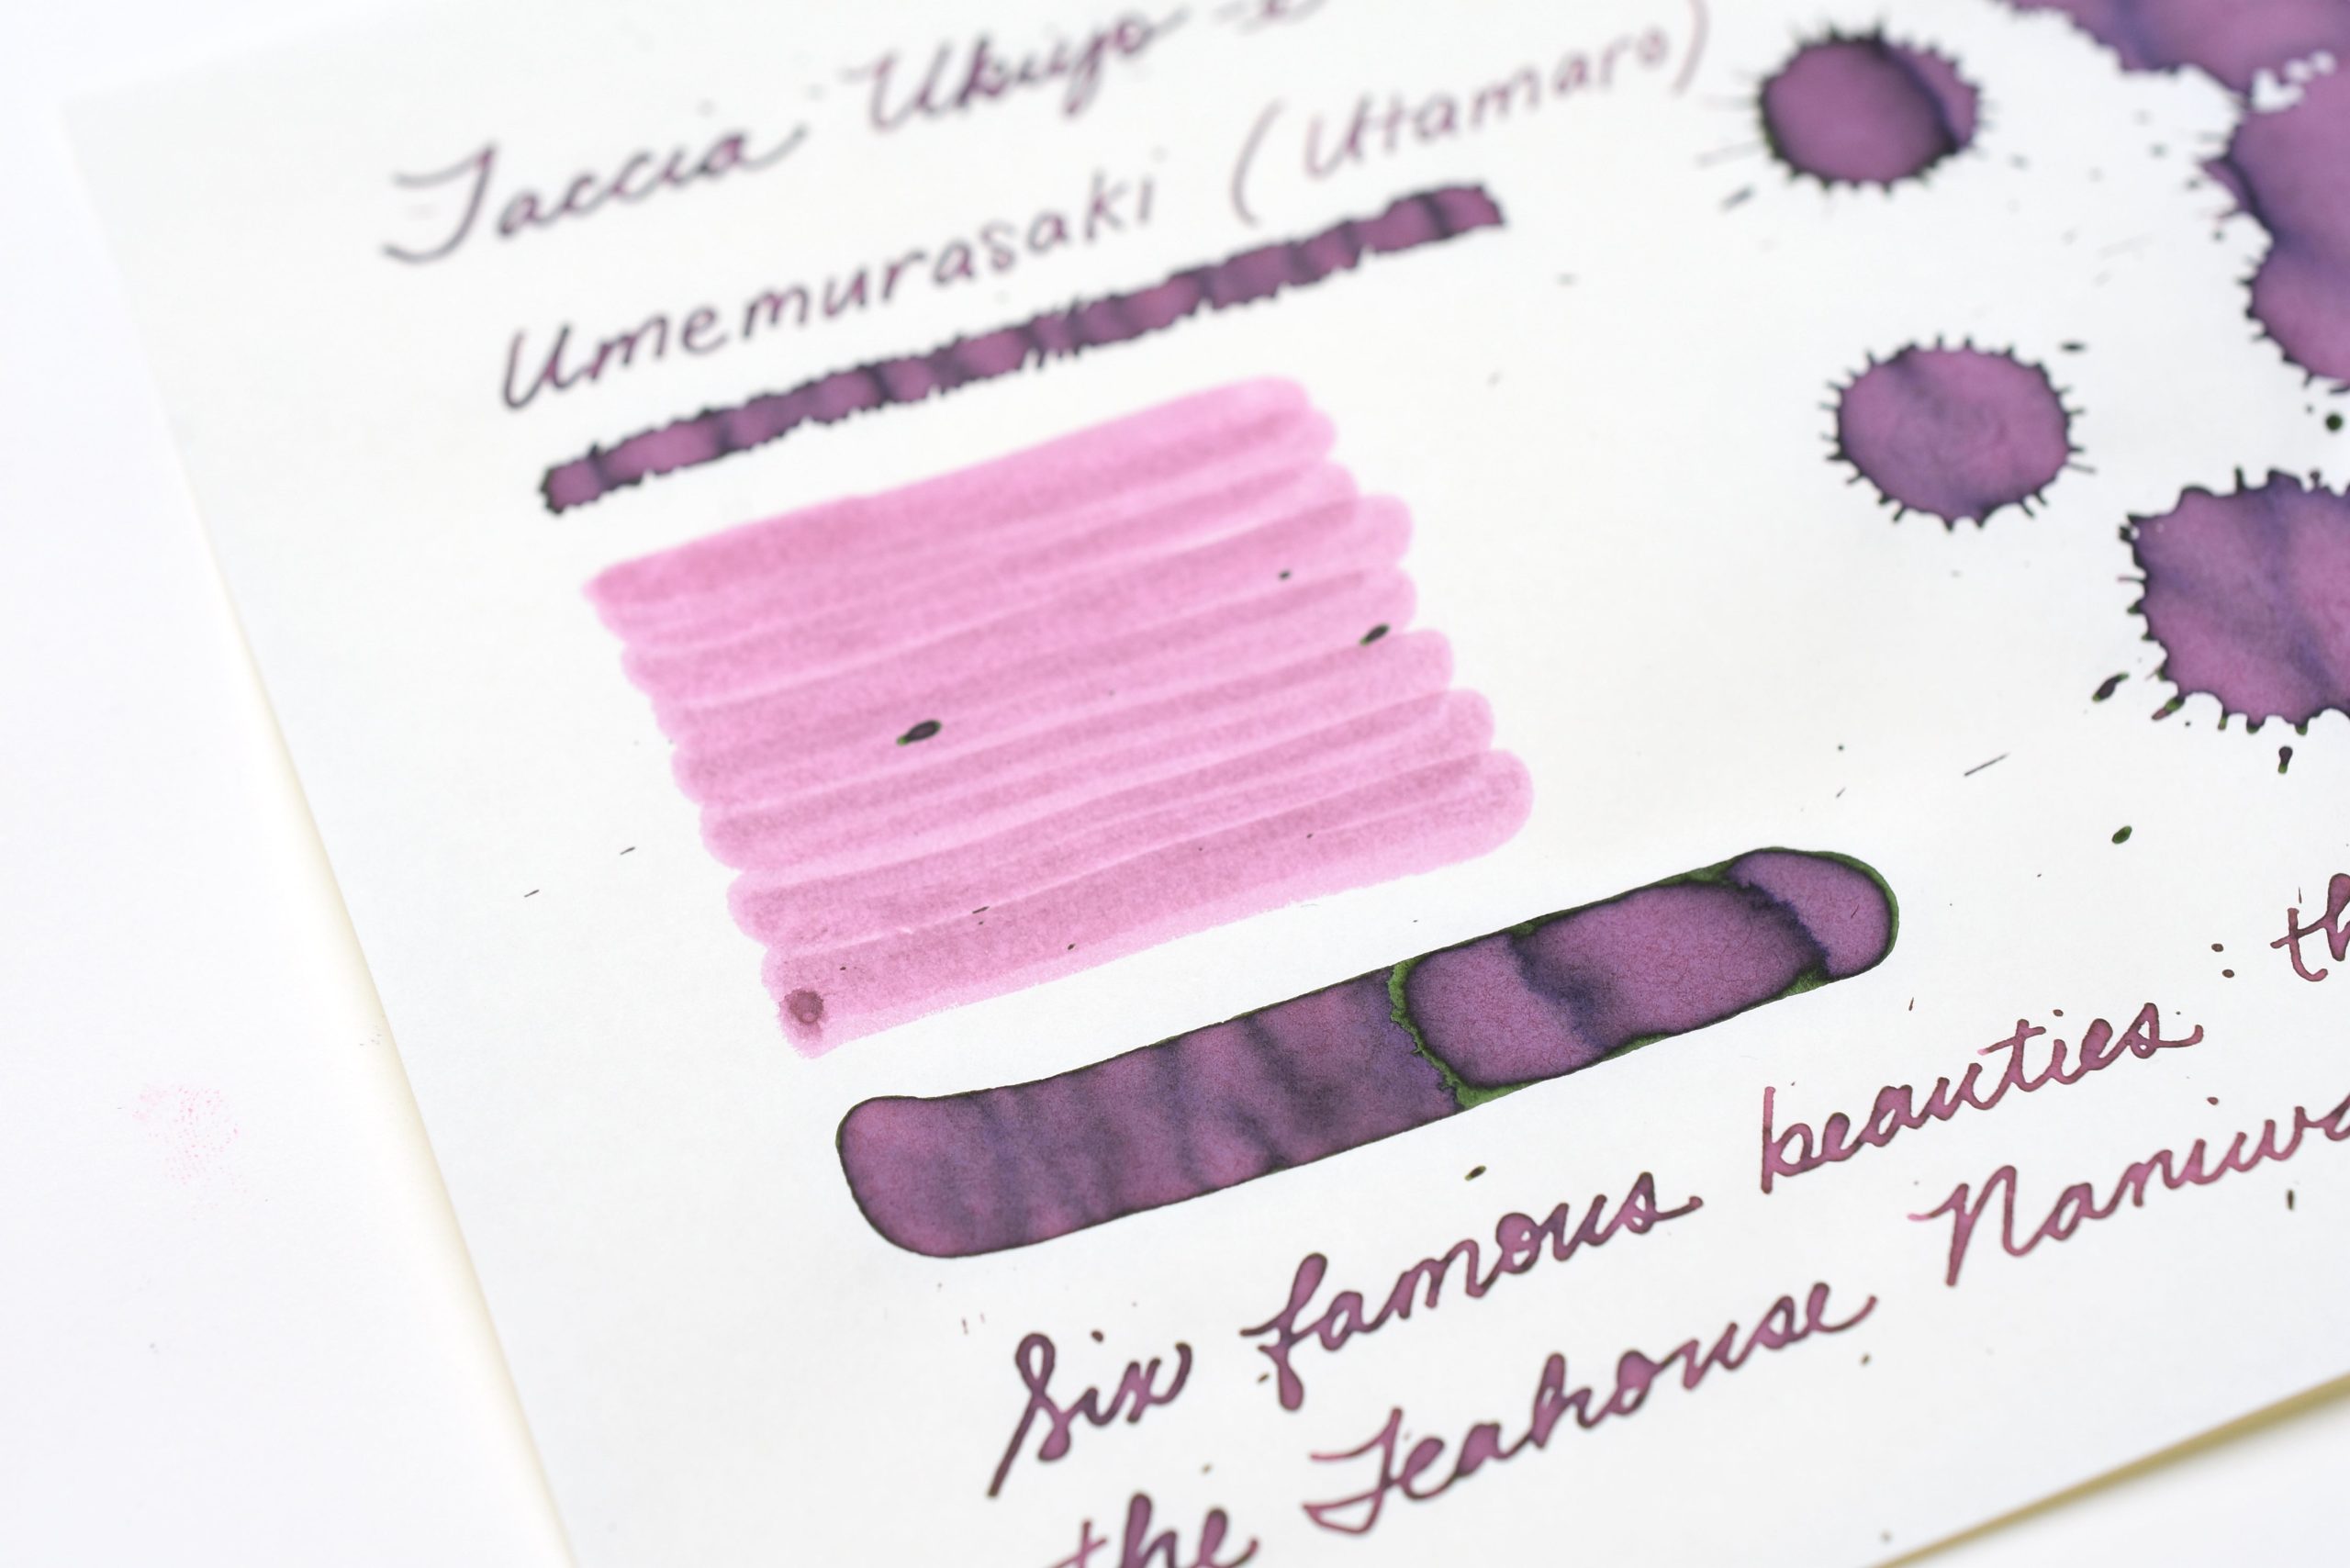 Taccia Ukiyo-
Umemurasaki (Utamaro)
Six famous beauties : th
the Teahouse Naniwa